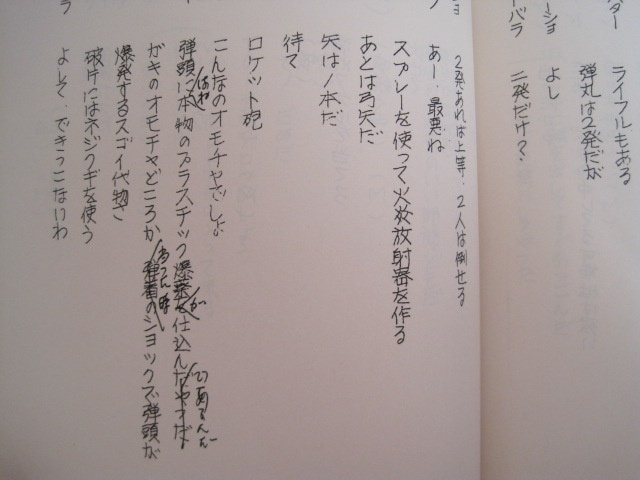 ダー
ライフルもある
弾丸は2発だが
ーショ
よし
ーバラ
二発だけ?
ショ
2発あれば上等、2人は倒せる
あー、最悪ね
スプレーを使って火炎放射器を作る
あとは弓矢だ
矢は1本だ
待て
ロケット砲
こんなのオモチャでしょ
弾頭には本物のプラスチック爆薬が仕込んであるんだ
ガキのオモチャどころか
のショックで弾頭が
爆発するスゴイ代物さ
破片にはネジクギを使う
よして、できっこないわ
ラ